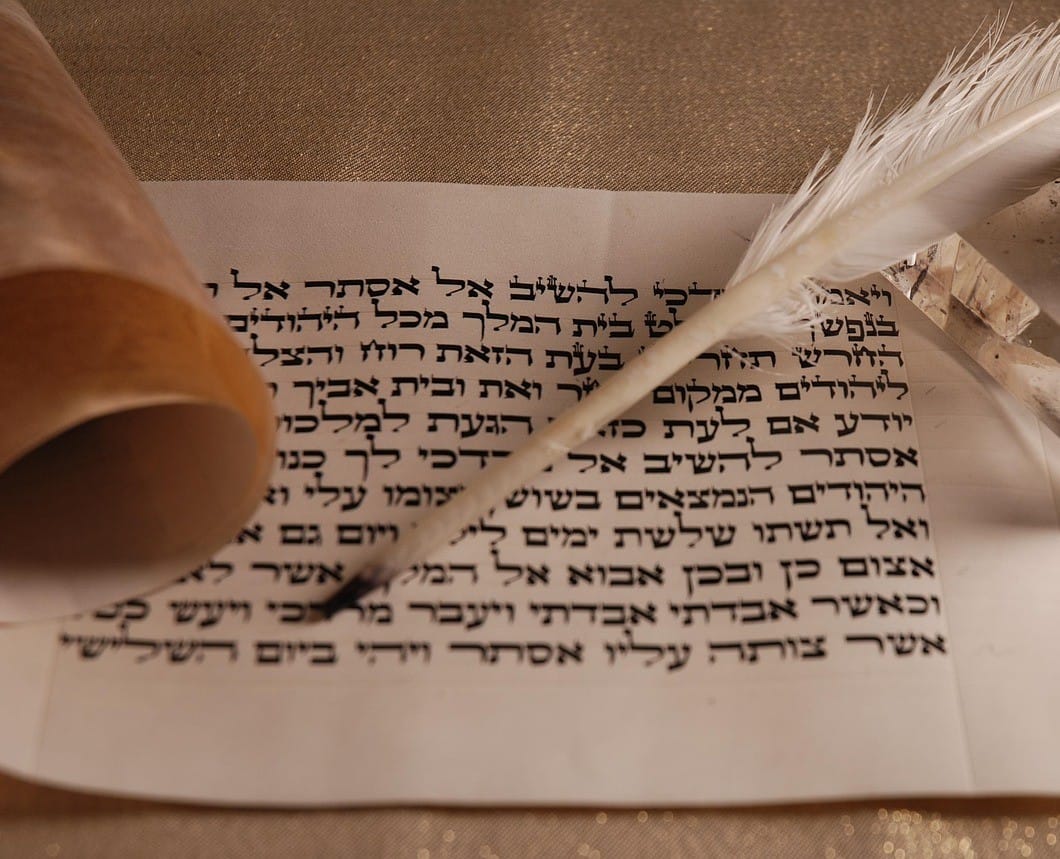 להשיב אל אסתר אל
בנפשך בית המלך מכל היהודים
החרש בעת הזאת רוח
ליהודים ממקום ואת ובית אביך
יודע אם לעת הגעת
אסתר להשיב אל מרדכי לך
היהודים הנמצאים עלי
ואל תשתו שלשת ימים ויום גם
אצום כן ובכן אבוא אל המלך אשר
וכאשר אבדתי אבדתי ויעבר מרדכי ויעש
אשר צותה עליו אסתר ויהי ביום השלישי